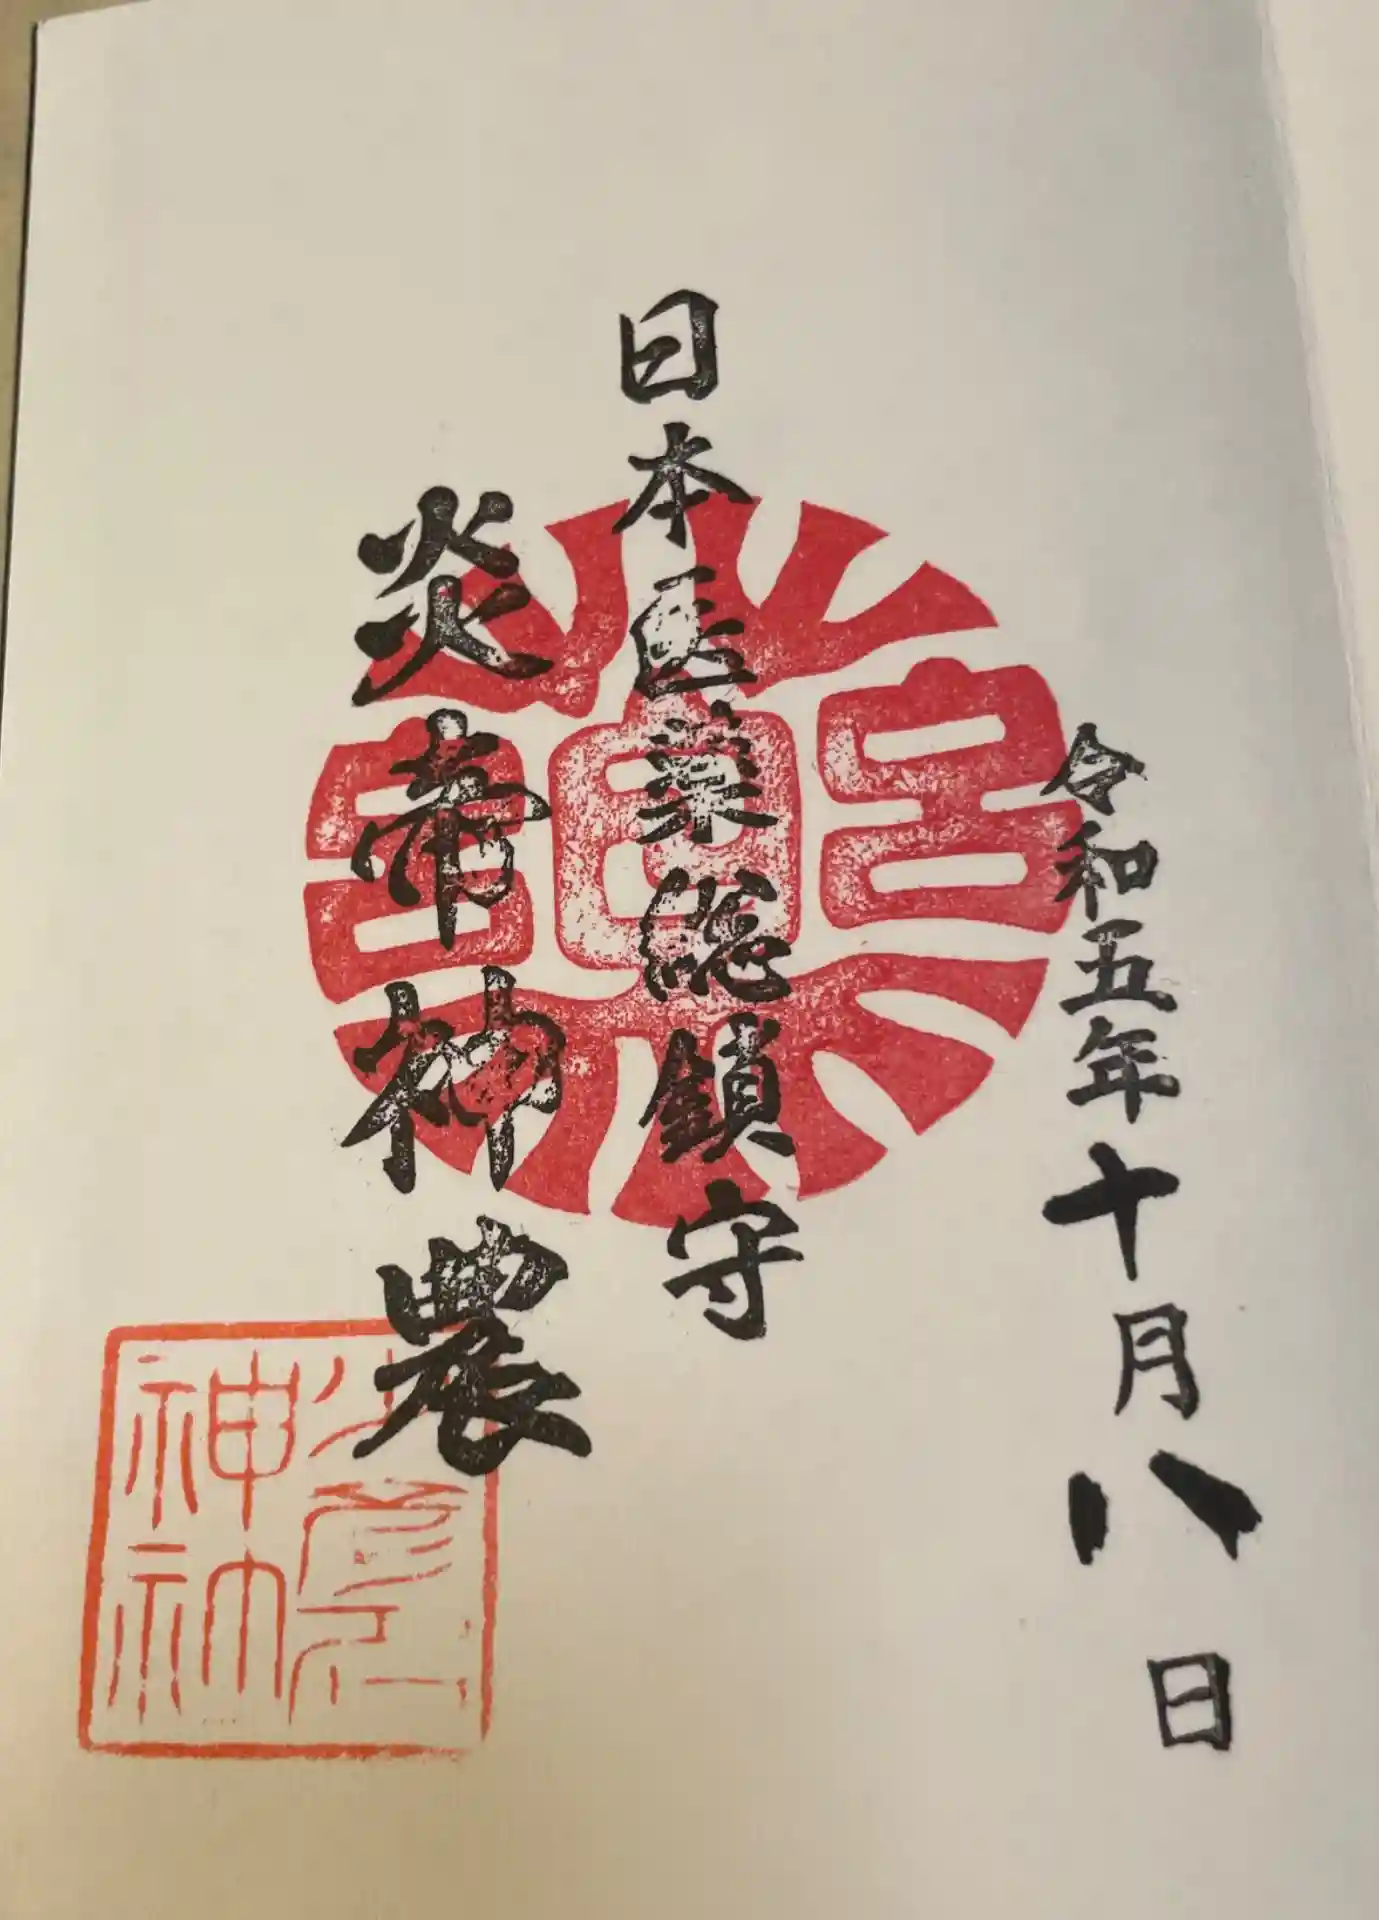 令和五年十月八日
日本医薬総鎮守
炎帝神農
少彦名
神社